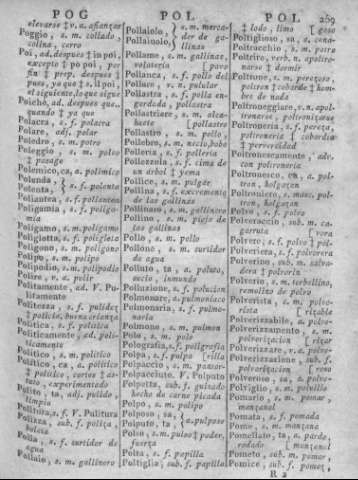 POG
POL
POL 269
elevarse ‡ v. a. afianzar
Poggio, s. m. collado,
colina, cerro
Poi, ad. despues ‡ in poi,
excepto ‡ po poi, por
fin ‡ prep. despues ‡
pues, ya que ‡ s. il poi,
el siguiente, lo que sigue
Poichè, ad. despues que..
quando ‡ ya que
Polacra, s. f. polacra
Polare, adj. polar
Poledro, s. m. potro
Poleggio, s. m. poleo
‡ pasage
Polemico, ca, a. polémico
Polenda,
Polenta, s. f. polenta
Poliantea, s. f. poliantea
Poligamia, s. f. poligamia
Poligamo, s. m. poligamo
Poliglotta, s. f. poliglota
Poligono, s. m. poligono
Polipo, s. m. polipo
Polipodio, s. m. polipodio
Polire, v. a. polir
Politamente, ad. V. Pulitamente
Politezza, s. f. pulidez
‡ policía, buena crianza
Politica, s. f. politica
Politicamente, ad. politicamente
Politico, s. m. politico
Politico, ca, a. politico
‡ politico, cortes ‡ astuto, experimentado
Polito, ta, adj. pulido,
limpio
Politura, s. f. V. Pulitura
Polizza, sub. f. poliza,
boleta
Polla, s. f. surtidor de
agua
Pollaio, s. m. gallinero
Pollaiolo,
Pollaiuolo, s. m. mercader de gallinas
Pollame, s. m. gallinas,
volatería
Pollanca, s. f. pollo del
Pollare, v. n. pulular
Pollastra, s. f. polla engordada, pollastra
Pollastriere, s. m. alcahuete
Pollastro, s. m. pollo
Pollebro, s. m. necio, bobo
Polleria, s. f. polleria
Pollezzola, s. f. cima de
un árbol ‡ yema
Pollice, s. m. pulgar
Pollina, s. f. excremento
de las gallinas
Pollinaro, s. m. gallinero
Pollino, s. m. piojo de
las gallinas
Pollo, s. m. pollo
Pollone, s. m. surtidor
de agua
Polluto, ta, a. poluto,
sucio, inmundo
Polluzione, s. f. polucion
Polmonare, a. pulmoniaco
Polmonaria, s. f. pulmonaria
Polmone, s. m. pulmon
Polo, s. m. polo
Polografia, s. f. poligrafia
Polpa, s. f. pulpa
Polpaccio, s. m. panorra
Polpacciuto, V. Polputo
Polpetta, sub. f. guisado
hecho de carne picada
Polpo, s. m. polipo
Polposo, sa,
Polputo, ta, a. pulposo
Polso, s. m. pulso ‡ poder,
fuerza
Polta, s. f. papilla
Poltiglia, sub. f. papilla
‡ lodo, limo
Poltiglioso, sa, a. cenagoso
Poltracchio, s. m. potro
Poltrire, verb. n. apoltronarse ‡ dormir
Poltrone, s. m. perezoso,
poltron ‡ cobarde ‡ hombre de nada
Poltroneggiare, v. n. apoltronarse, poltronizarse
Poltroneria, s. f. pereza,
poltronería ‡ cobardía
‡ perversidad
Poltronescamente, adv.
con poltronería
Poltronesco, ca, a. poltron, holgazan
Poltroniero, s. masc. poltron, holgazan
Polve, s. f. polvo
Polveraccio, sub. m. cagarruta
Polvere, s. f. polvo ‡ pólvora
Polveriera, s. f. polvorera
Polverino, sub. m. salvadera ‡ polvorin
Polverio, s. m. torbellino,
remolino de polvo
Polverista, s. m. polvorista
Polverizzabile, a. polvorizable
Polverizzamento, s. m.
polvorizacion
Polverizzare, v. a. polvorizar
Polverizzazione, sub. f.
polvorizacion
Polveroso, sa, a. polvoroso
Polviglio, s. m. polvillo
Pomario, s. m. pomar,
manzanal
Pomata, s. f. pomada
Pomo, s. m. manzana
Pomellato, ta, a. pardo,
rodado
Pometo, sub. m. pomar,
Pomice, sub. f. pomez,
R 2